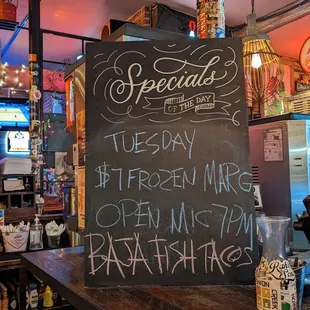 Specials
OF THE DAY
TUESDAY
$7 FROZEN MARG
OPEN MIC 7PM
BAJA FISH TACOS